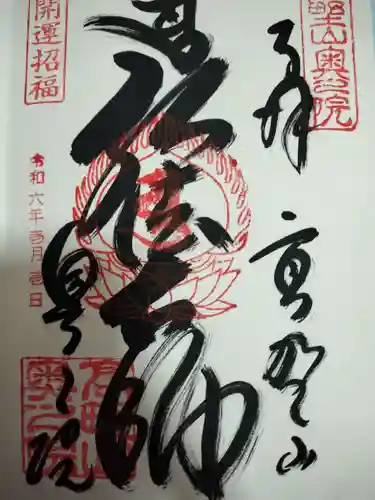 野山奥之院
奉拝
高野山
弘法大師
開運招福
令和六年壱月壱日
奥之院
高野山
奥之院